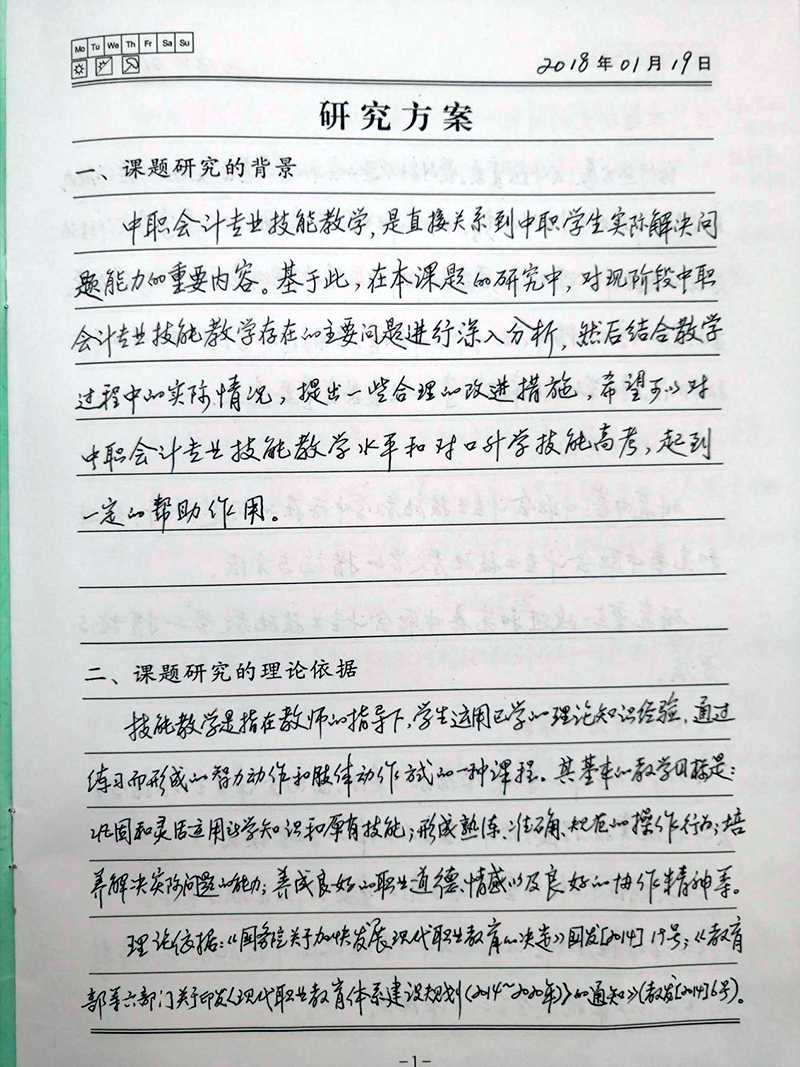 Mo Tu We Th Fr Sa Su
2018年01月19日
研究方案
一、课题研究的背景
中职会计专业技能教学，是直接关系到中职学生实际解决问
题能力的重要内容。基于此，在本课题的研究中，对现阶段中职
会计专业技能教学存在的主要问题进行深入分析，然后结合教学
过程中的实际情况，提出一些合理的改进措施，希望可以对
中职会计专业技能教学水平和对口升学技能高考，起到
一定的帮助作用。
二、课题研究的理论依据
技能教学是指在教师的指导下，学生运用已学的理论知识经验，通过
练习而形成的智力动作和肢体动作方式的一种课程。其基本的教学目标是：
巩固和灵活运用所学知识和原有技能；形成熟练、准确、规范的操作行为；培
养解决实际问题的能力；养成良好的职业道德、情感以及良好的协作精神等。
理论依据：《国务院关于加快发展现代职业教育的决定》国发[2014]19号；《教育
部等六部门关于印发《现代职业教育体系建设规划(2014~2020年)》的通知》(教发[2014]6号)。
-1-